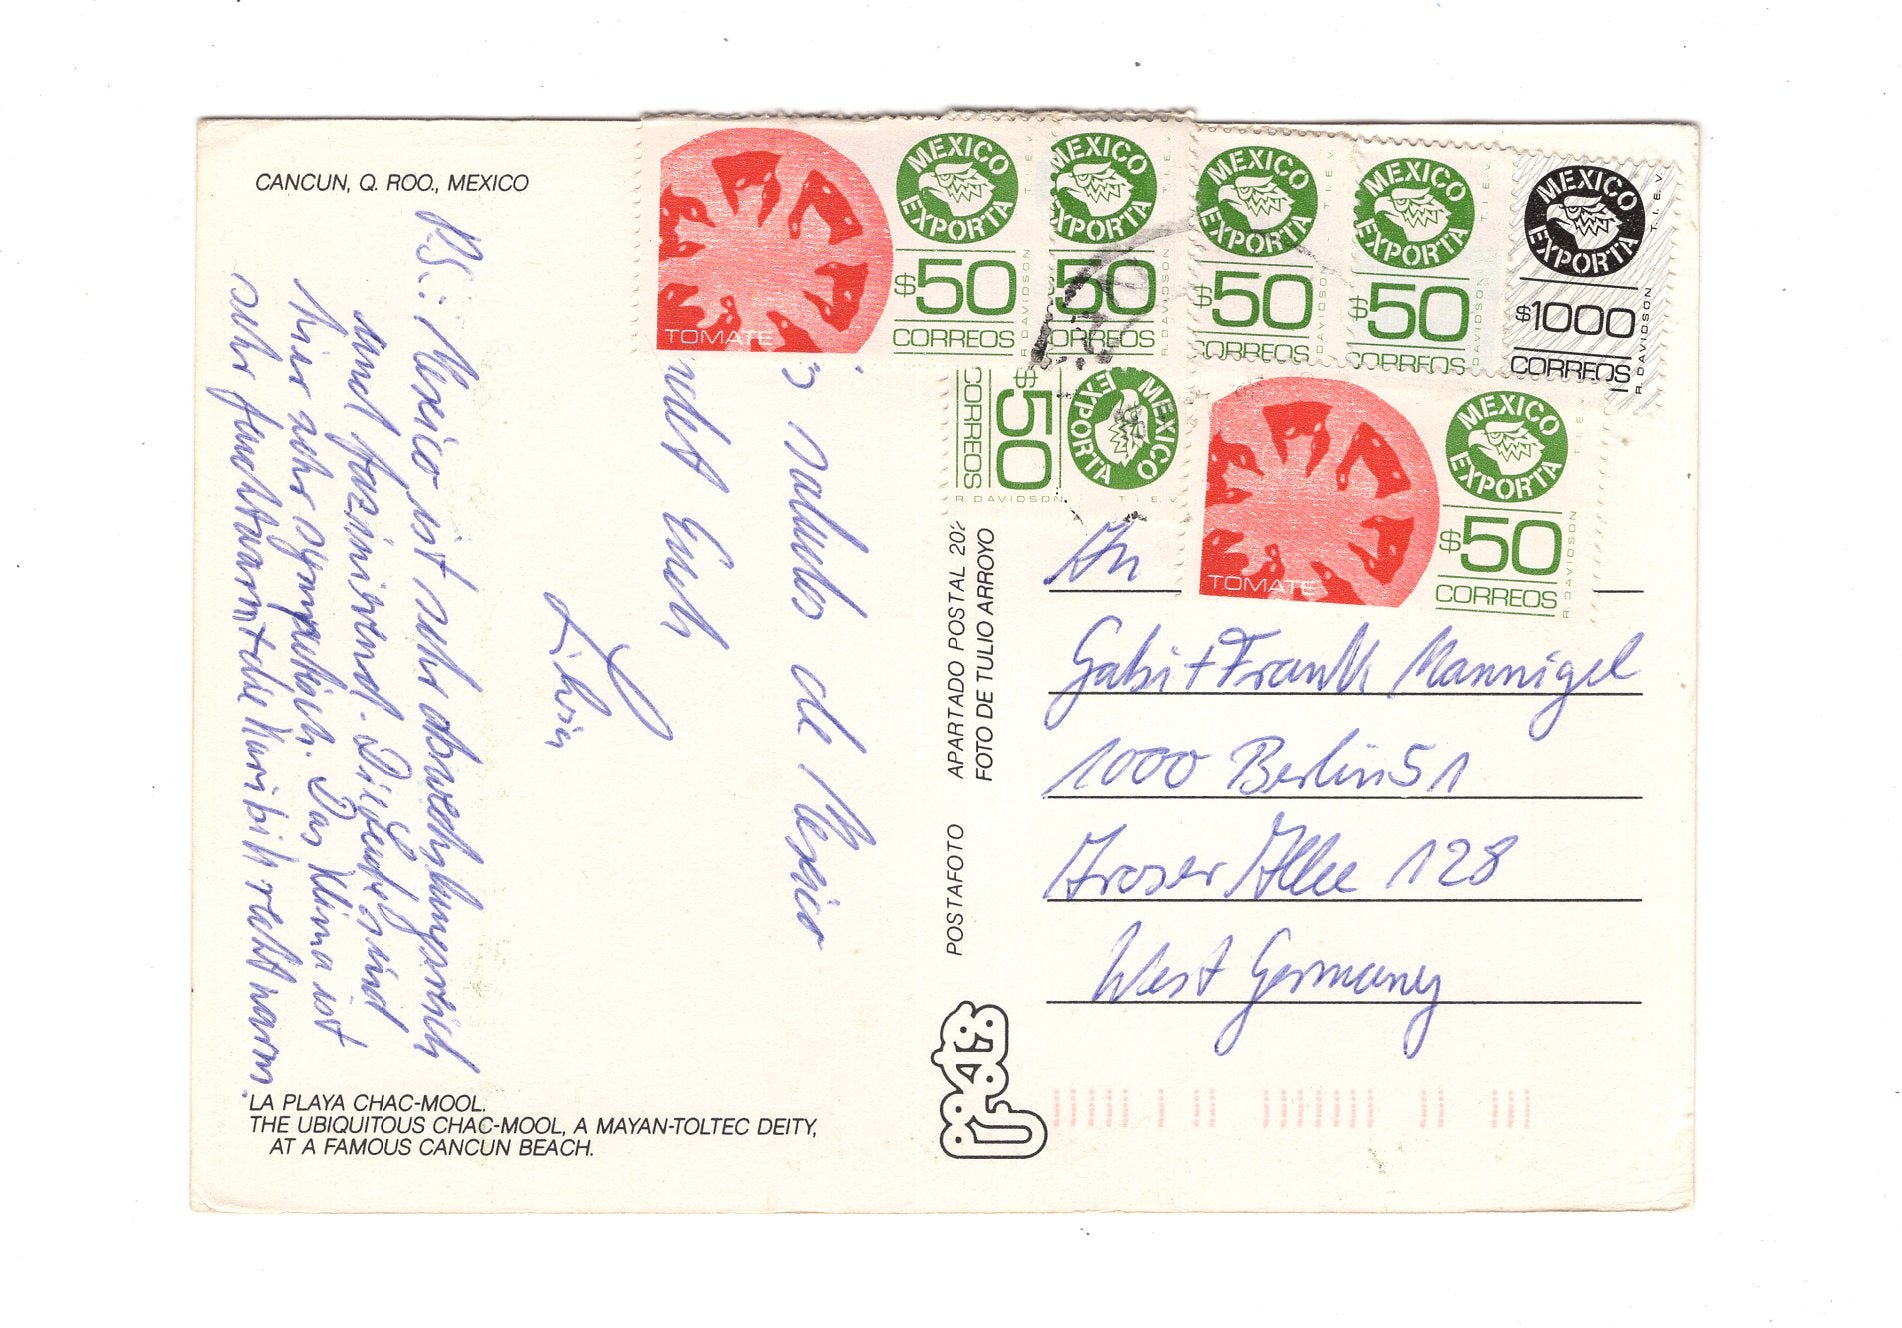 CANCUN, Q. ROO., MEXICO
saludos de Mexico
Euch
Silvia
P.S.: Mexico ist sehr abwechlungsreich
und faszinierend. Die Leute sind
hier sehr sympathisch. Das Klima ist
sehr
die Karibik recht warm.
LA PLAYA CHAC-MOOL.
THE UBIQUITOUS CHAC-MOOL, A MAYAN-TOLTEC DEITY,
AT A FAMOUS CANCUN BEACH.
POSTAFOTO APARTADO POSTAL 202
FOTO DE TULIO ARROYO
TOMATE
MEXICO EXPORTA
T.I.E.V.
$50
CORREOS
R. DAVIDSON
MEXICO EXPORTA
T.I.E.V.
$50
CORREOS
R. DAVIDSON
MEXICO EXPORTA
T.I.E.V.
$50
CORREOS
R. DAVIDSON
MEXICO EXPORTA
T.I.E.V.
$50
CORREOS
R. DAVIDSON
MEXICO EXPORTA
T.I.E.V.
$1000
CORREOS
R. DAVIDSON
MEXICO EXPORTA
T.I.E.V.
$50
CORREOS
R. DAVIDSON
TOMATE
MEXICO EXPORTA
T.I.E.V.
$50
CORREOS
R. DAVIDSON
An
Gabi + Frank Mannigel
1000 Berlin 51
Aroser Allee 128
West Germany